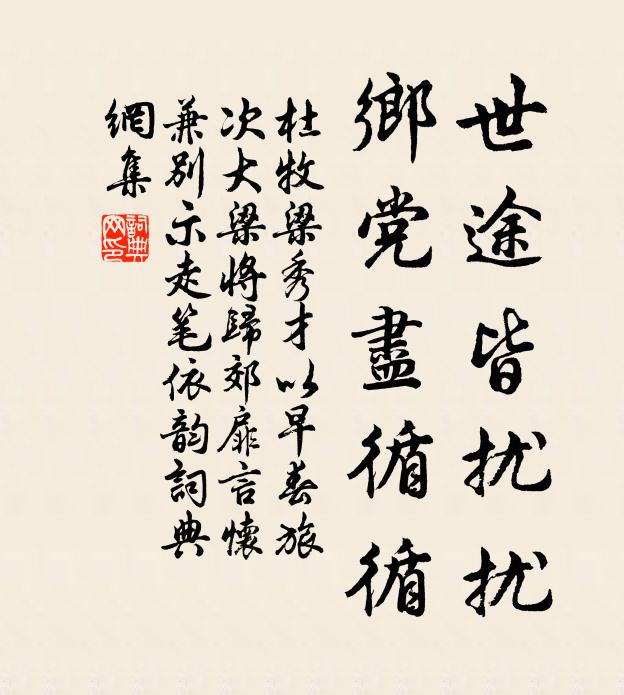 世途皆扰扰
鄉党盡循循
杜牧梁秀才以早春旅
次大梁將歸郊扉言懷
兼別示走笔依韵詞典
網集
詞典網印